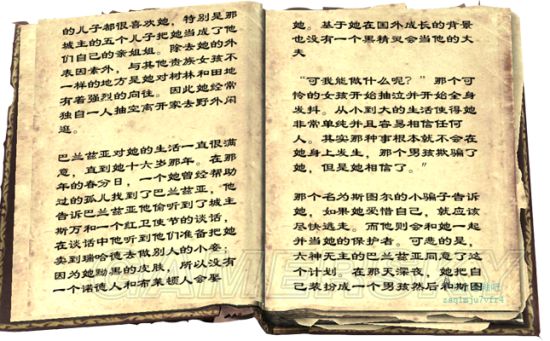 的儿子都很喜欢她，特别是那
城主的五个儿子把她当成了他
们自己的亲姐姐。除去她的外
表因素外，与其他贵族女孩不
一样的地方是她对树林和田地
有着强烈的向往。因此她经常
独自一人抽空离开家去野外闲
逛。
巴兰兹亚对她的生活一直很满
意，直到她十六岁那年。在那
年的春分日，一个她曾经帮助
过的孤儿找到了巴兰兹亚，他
告诉巴兰兹亚他偷听到了城主
斯万和一个红卫使节的谈话，
在谈话中他听到他们准备把她
卖到瑞哈德去做别人的小妾；
因为她黝黑的皮肤，所以没有
一个诺德人和布莱顿人会娶
她。基于她在国外成长的背景
也没有一个黑精灵会当他的丈
夫
“可我能做什么呢？”那个可
怜的女孩开始抽泣并开始全身
发抖。从小到大的生活使得她
非常单纯并且容易相信任何
人。其实那种事根本就不会在
她身上发生，那个男孩欺骗了
她，但是她相信了。”
那个名为斯图尔的小骗子告诉
她，如果她爱惜自己，就应该
尽快逃走。而他则会和她一起
并当她的保护者。可悲的是，
六神无主的巴兰兹亚同意了这
个计划。在那天深夜，她把自
己装扮成一个男孩然后和斯图
GAMERSKY
zaq1mju7vfr4